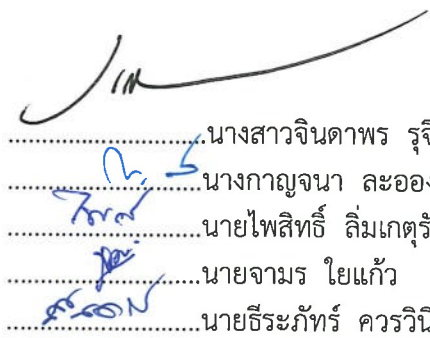 ........................นางสาวจินดาพร รุจิ
........................นางกาญจนา ละออง
........................นายไพสิทธิ์ ลิ่มเกตุรั
........................นายจามร ใยแก้ว
........................นายธีระภัทร์ ควรวินิ